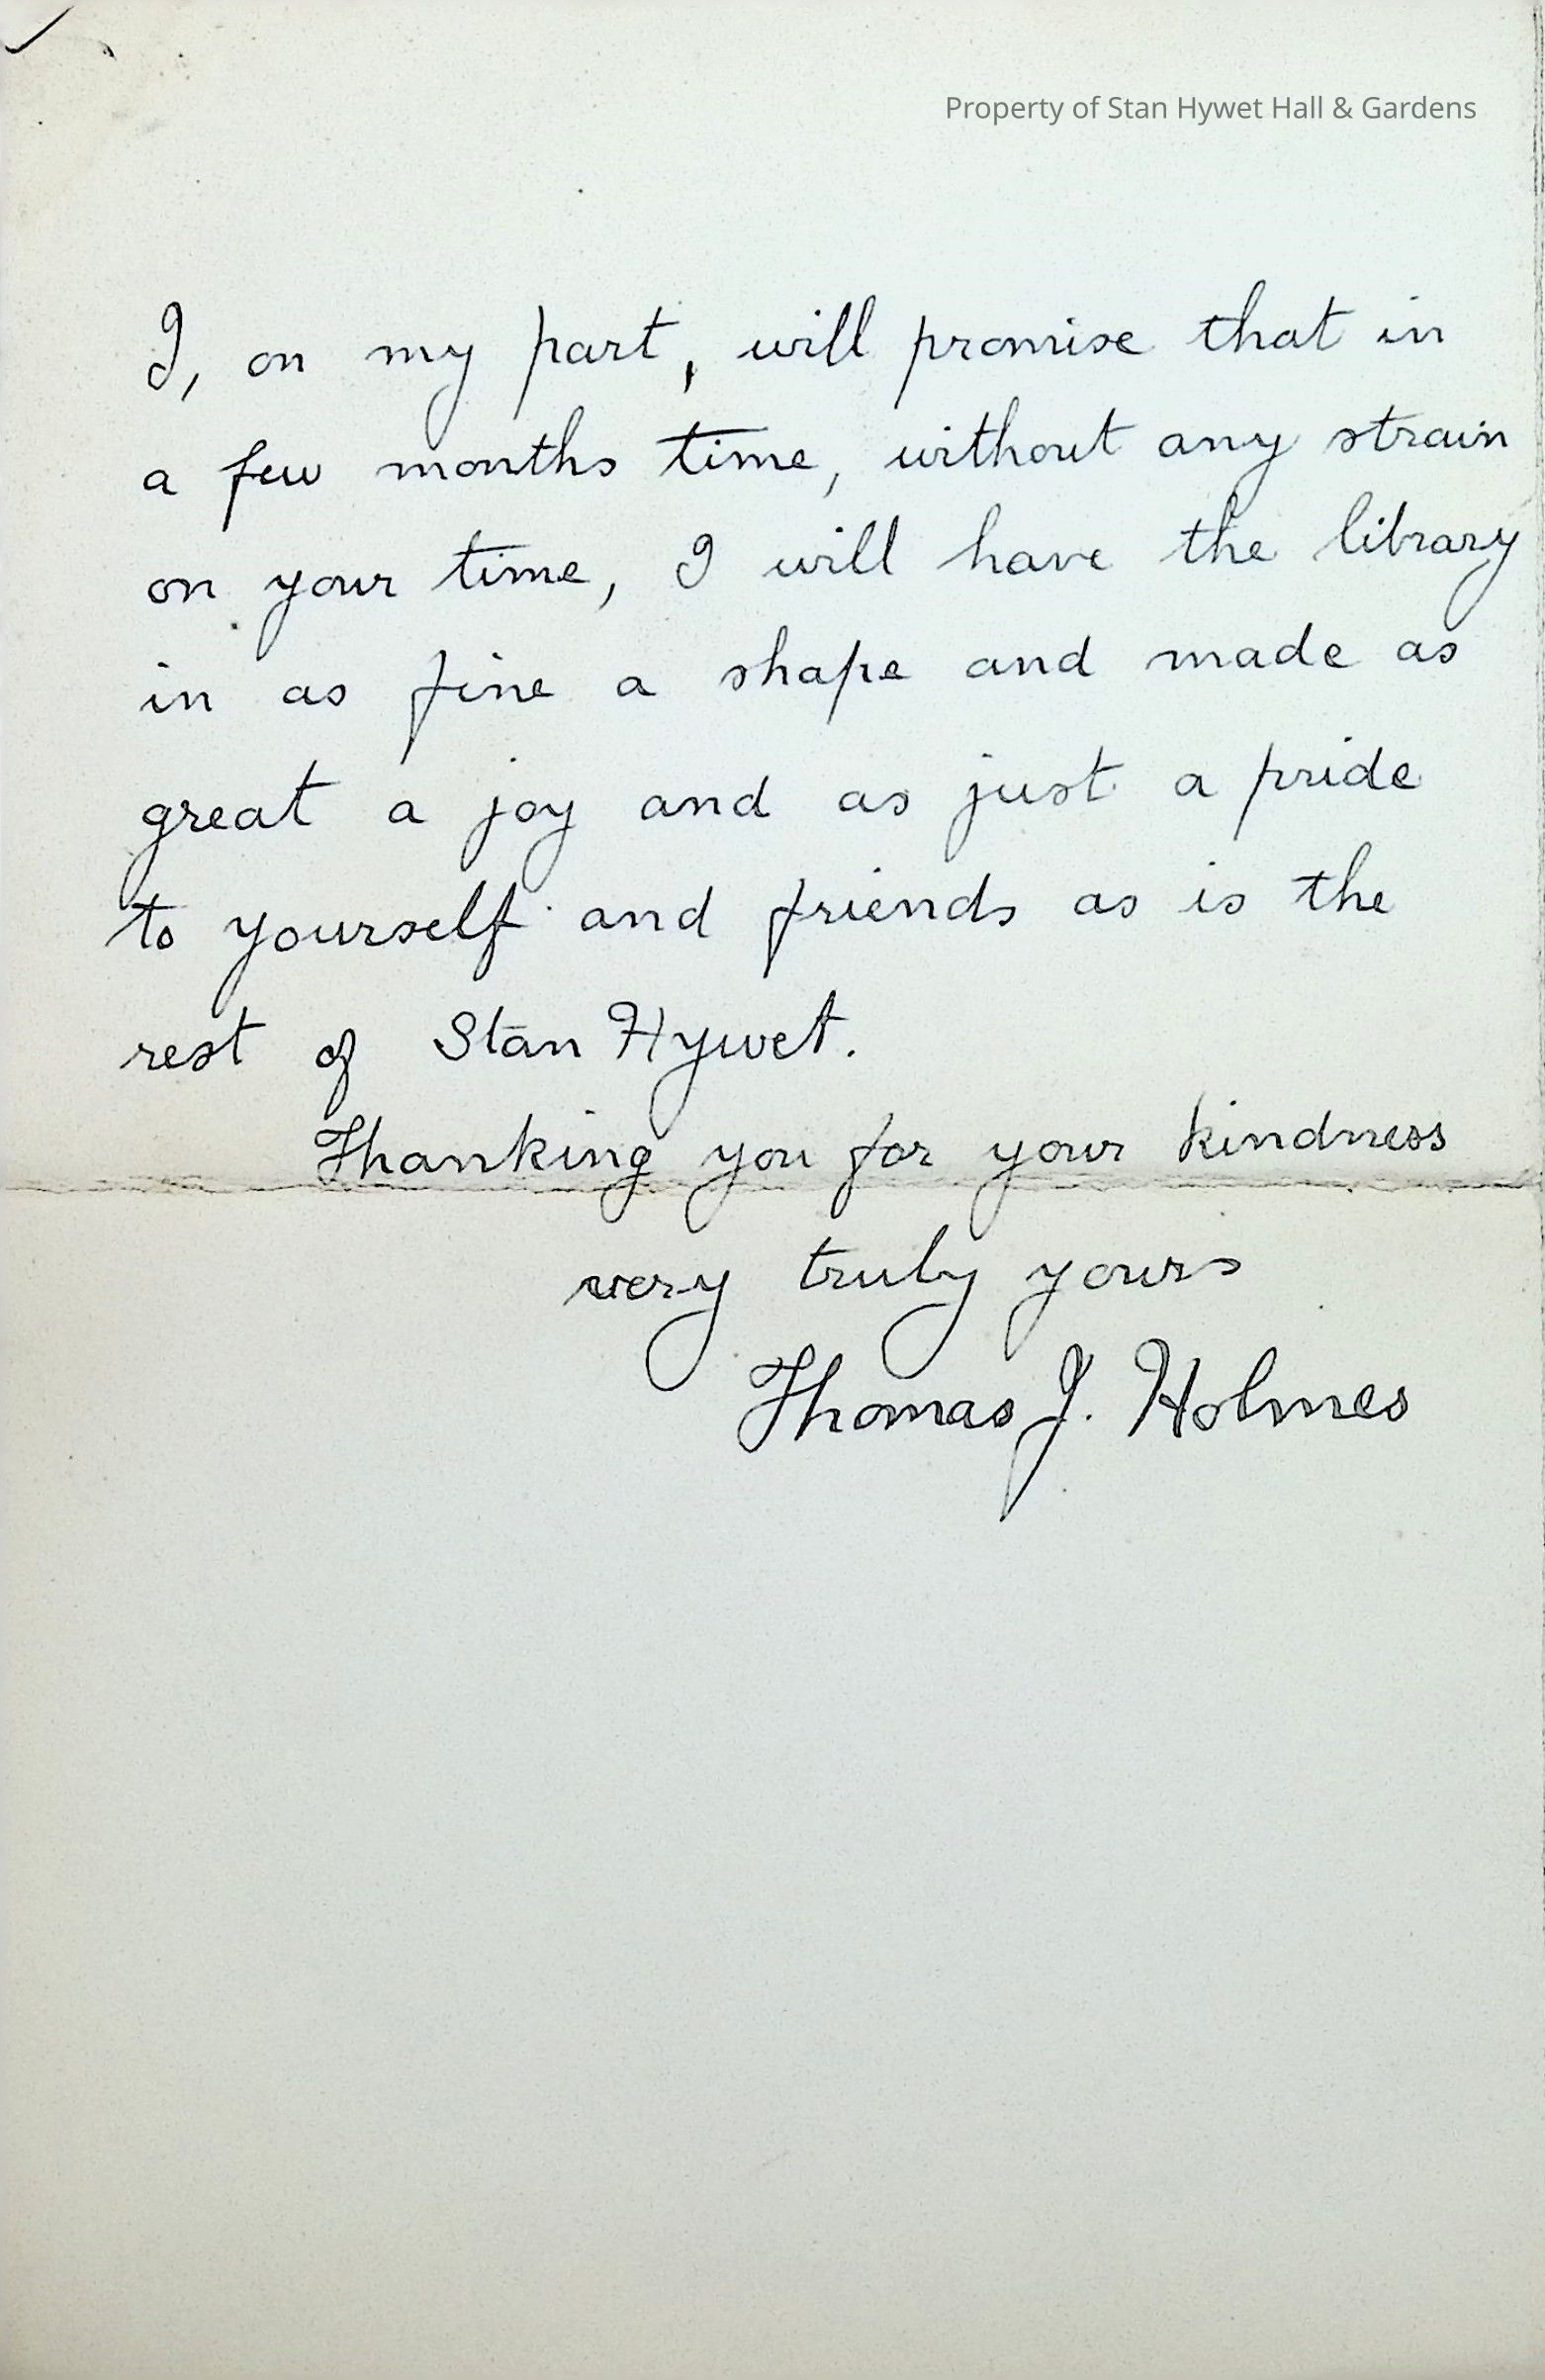 Property of Stan Hywet Hall & Gardens
I, on my part, will promise that in
a few months time, without any strain
on your time, I will have the library
in as fine a shape and made as
great a joy and as just a pride
to yourself and friends as is the
rest of Stan Hywet.
Thanking you for your kindness
very truly yours
Thomas J. Holmes